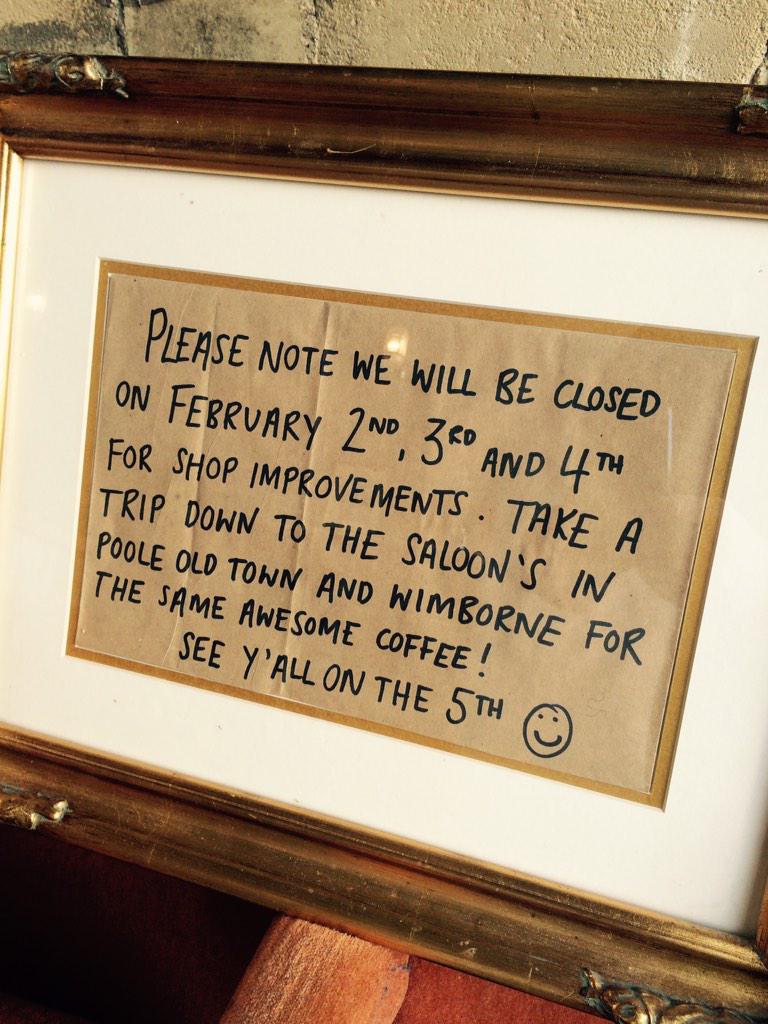 PLEASE NOTE WE WILL BE CLOSED
ON FEBRUARY 2ND, 3RD AND 4TH
FOR SHOP IMPROVEMENTS. TAKE A
TRIP DOWN TO THE SALOON'S IN
POOLE OLD TOWN AND WIMBORNE FOR
THE SAME AWESOME COFFEE!
SEE Y'ALL ON THE 5TH